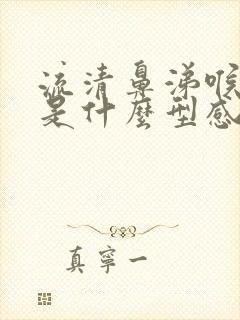 流清鼻涕喉
是什麼型感
真寧一